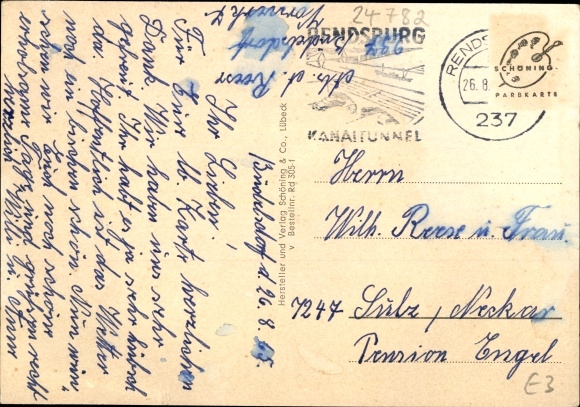 24782
RENDSBURG
KANALTUNNEL
RENDS
26.8.
237
SCHÖNING
FARBKARTE
Abs. d. Reese
237 Büdelsdorf
Büdelsdorf d. 26.8.65.
Ihr Lieben!
Für Eure lb. Karte herzlichen
Dank. Wir haben uns sehr
gefreut. Ihr habt es ja sehr hübsch
da. Hoffentlich ist das Wetter
noch ein bischen schön. Nun
wünschen wir Euch noch schöne
Tage und grüßen recht
herzlich Willi u. Anne
Hersteller und Verlag Schöning & Co., Lübeck
Bestellnr. Rd 305-1
Herrn
Wilh. Reese u. Frau.
7247 Sulz / Neckar
Pension Engel
E3